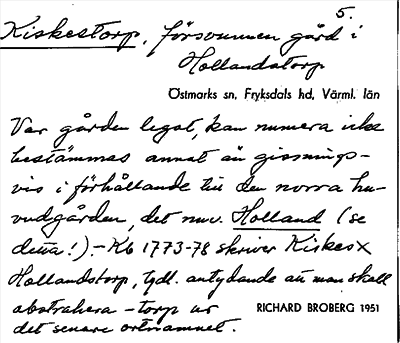 5.
Kiskestorp, försvunnen gård i
Hollandstorp
Östmarks sn, Fryksdals hd, Värml. län
Var gården legat, kan numera icke
bestämmas annat än gissnings-
vis i förhållande till den norra hu-
vudgården, det nuv. Holland (se
detta!). - Kb 1773-78 skriver Kiskes x
Hollandstorp, tydl. antydande att man skall
abstrahera -torp ur
det senare ortnamnet.
RICHARD BROBERG 1951